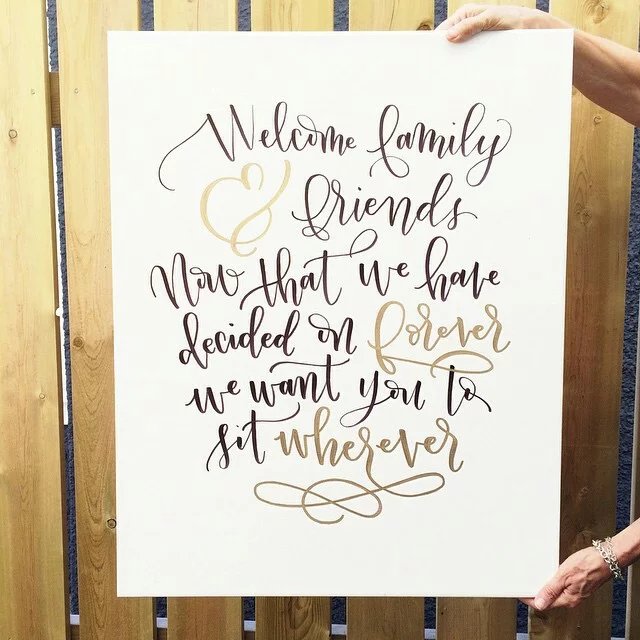 Welcome family
& friends
Now that we have
decided on forever
we want you to
sit wherever